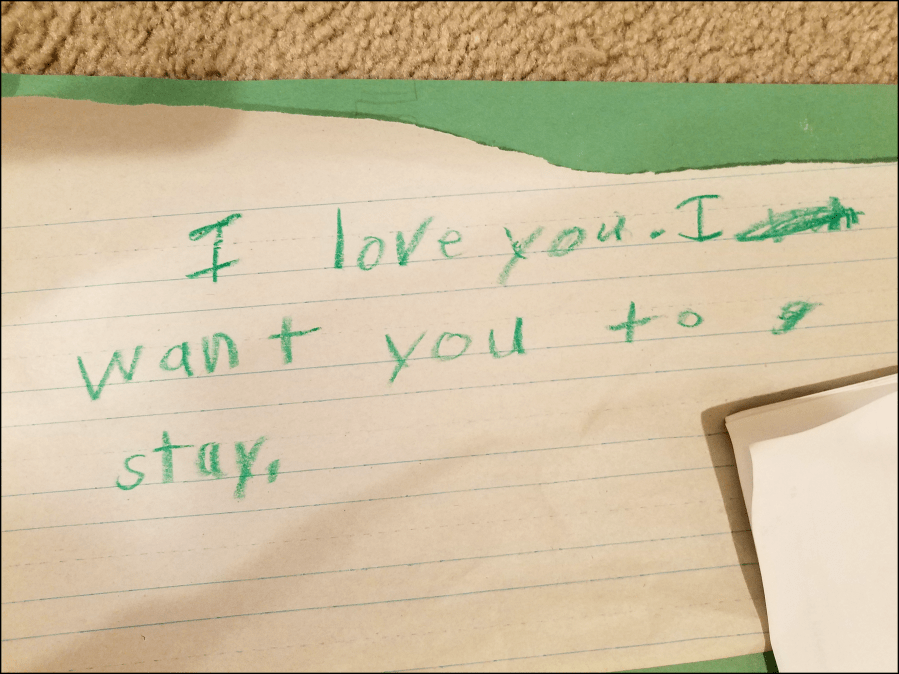 I love you. I
want you to
stay,